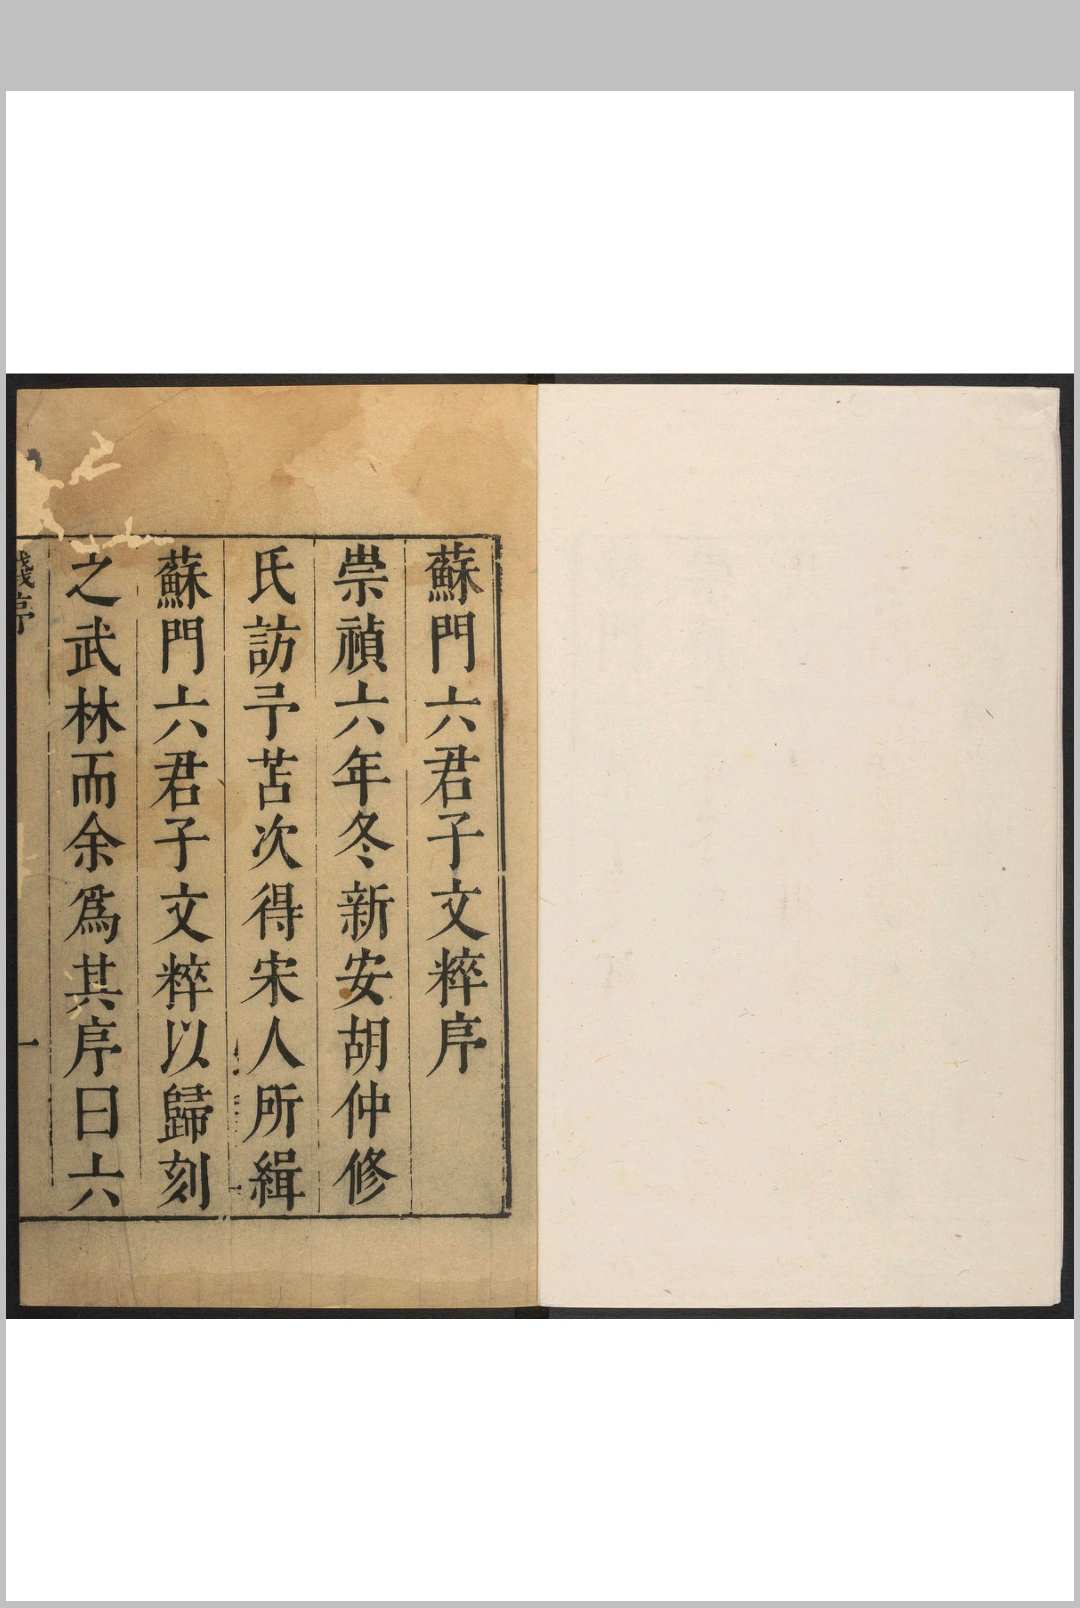 蘇門六君子文粹序
崇禎六年冬新安胡仲修
氏訪予苫次得宋人所緝
蘇門六君子文粹以歸刻
之武林而余爲其序曰六
序
一